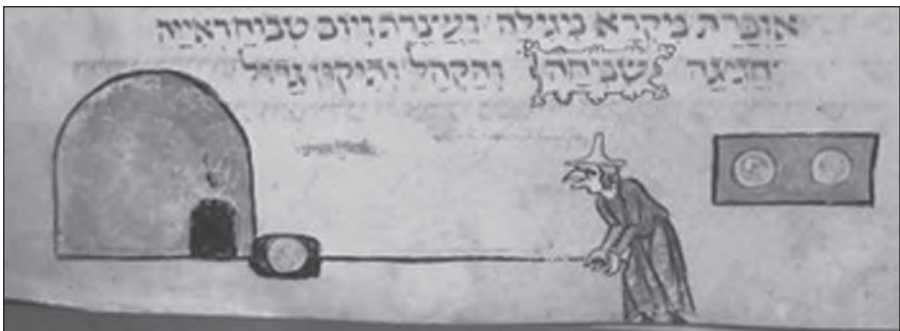 אזכרת מקרא מגילה ועצרת ויום טבוח ראייה
חגיגה שמיחה והקהל ותיקון גדול